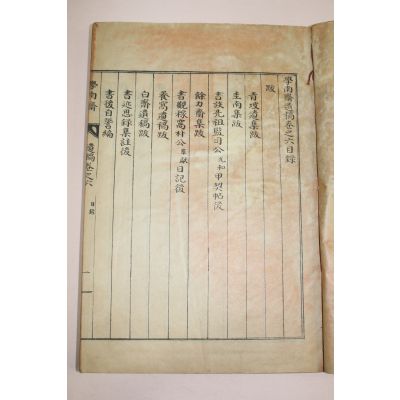 學南齋遺稿卷之六目錄
跋
青坡遺集跋
圭南集跋
書族先祖監司公元和甲契帖後
餘力齋集跋
書觀稼窩村公日記後
養窩遺稿跋
白齋遺稿跋
書近思錄集註後
書後自警編
學南齋 遺稿卷之六 目錄 一